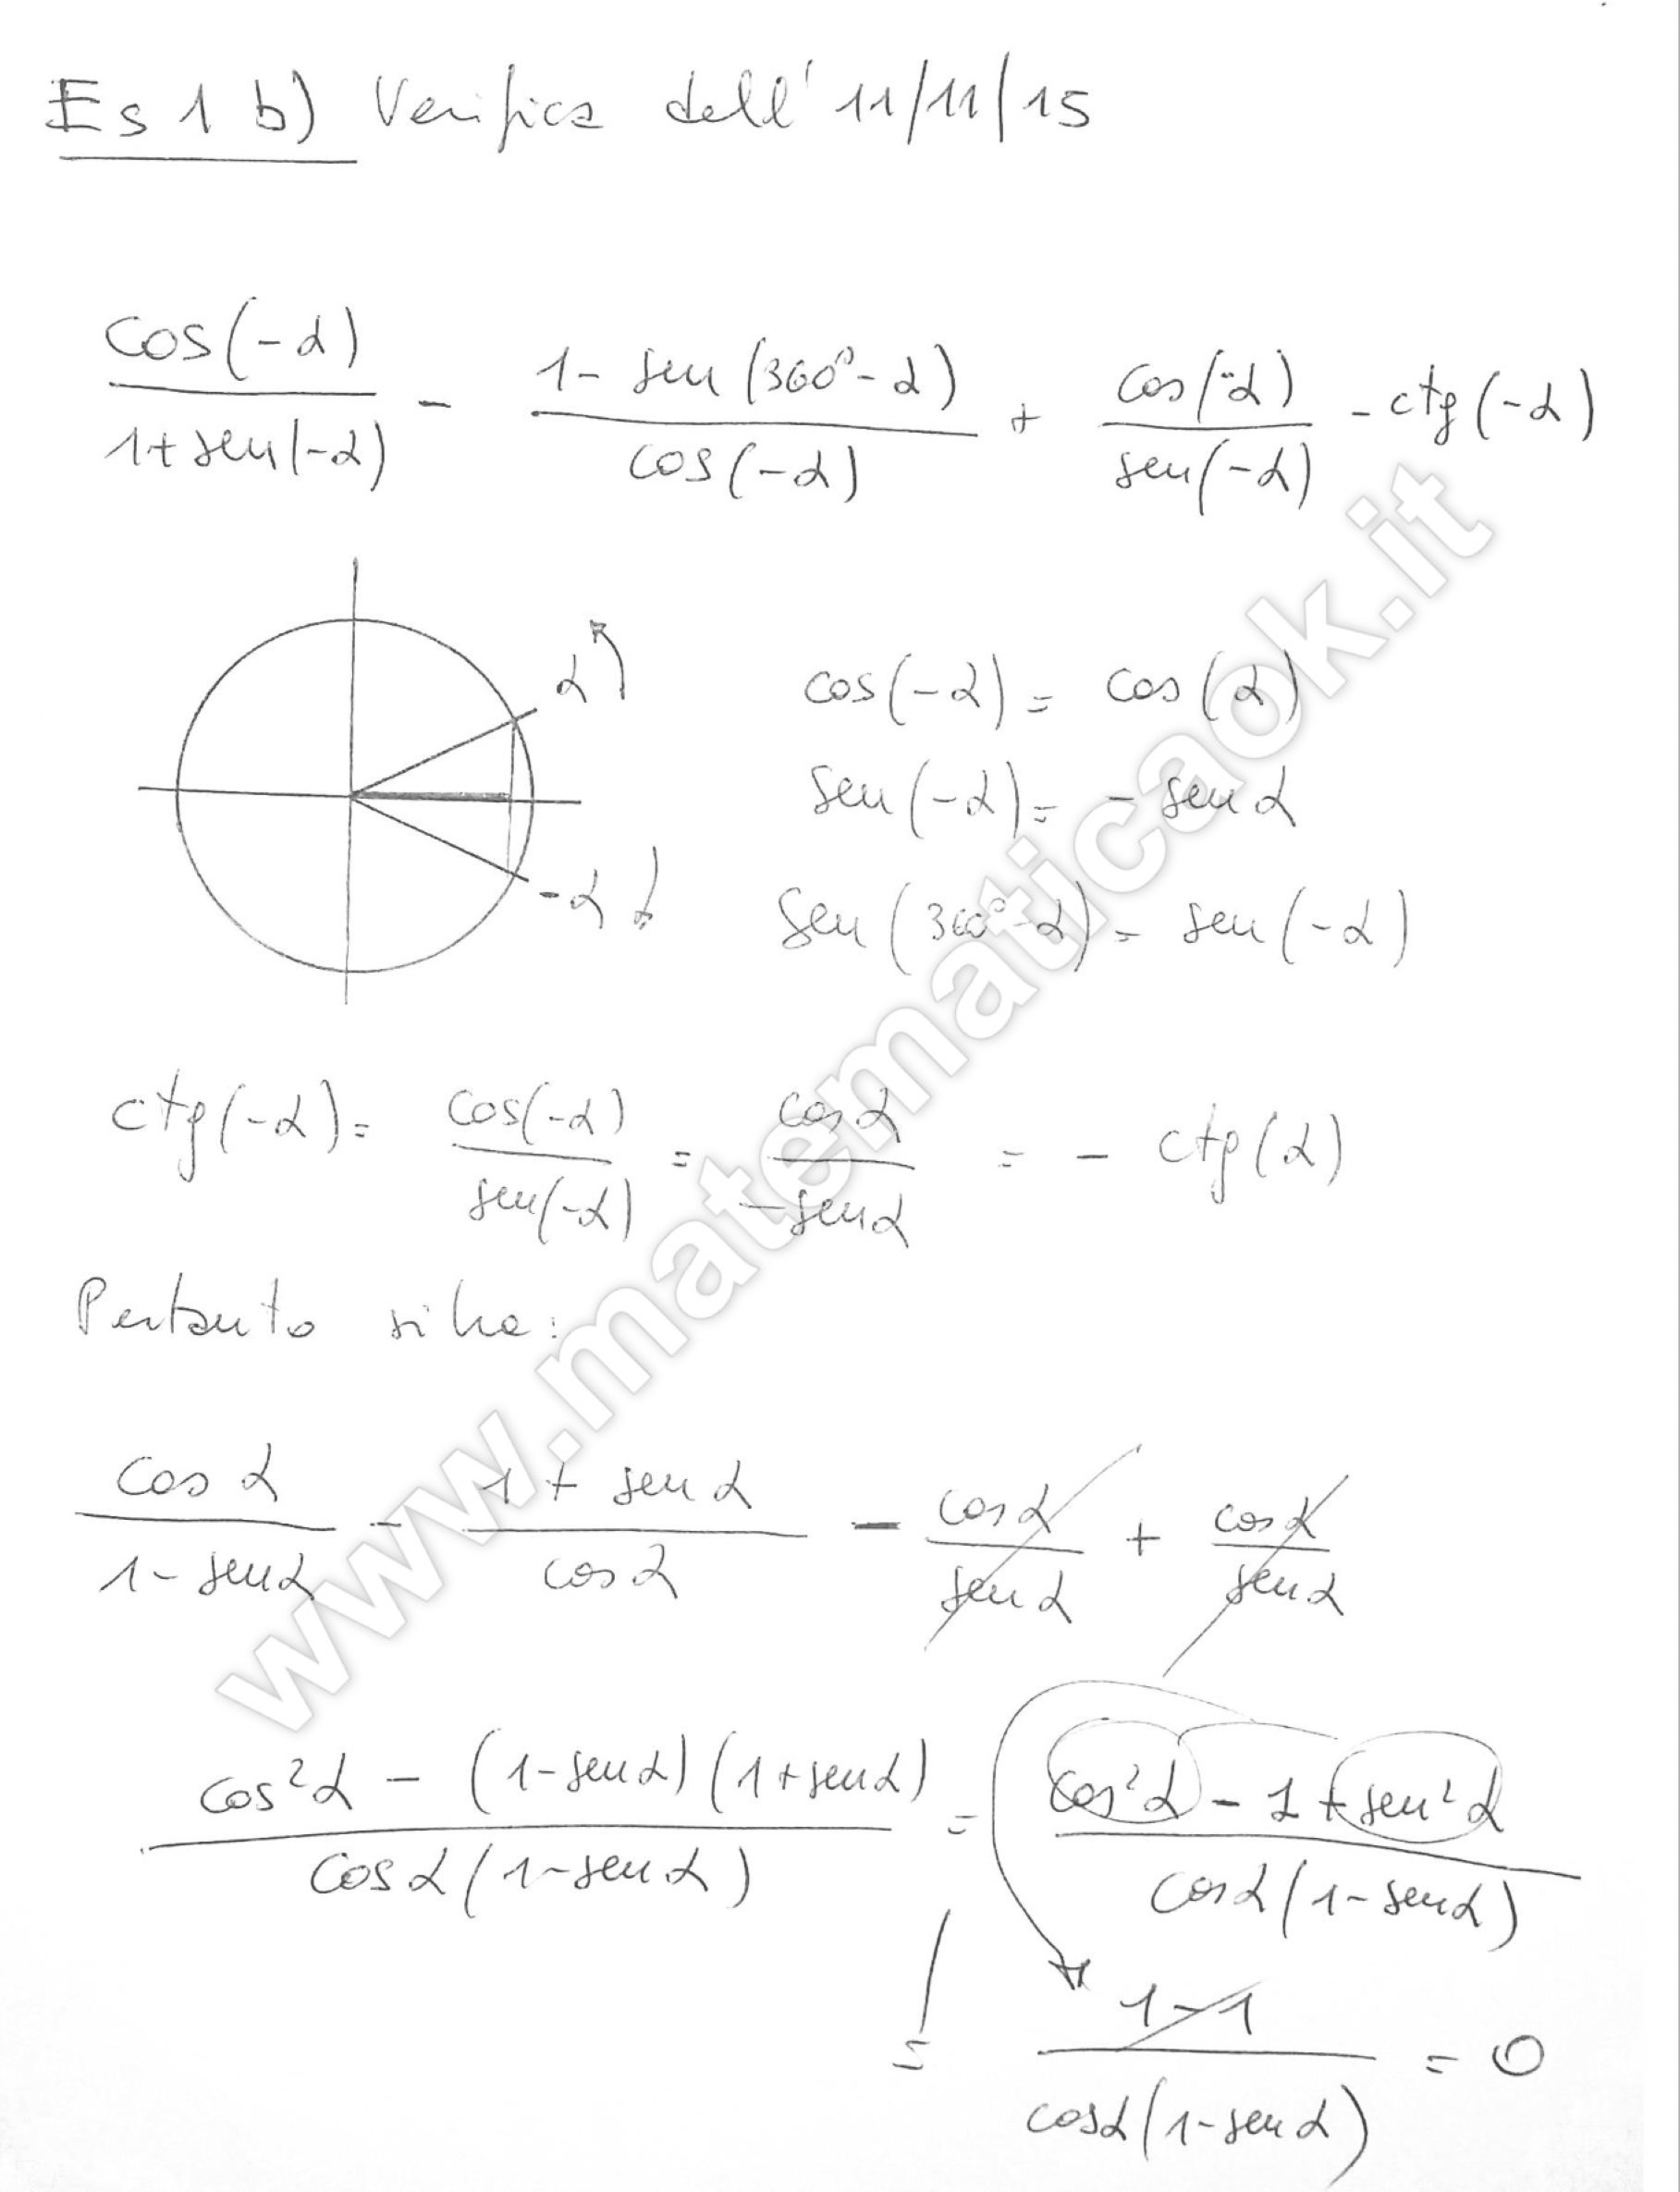 Es 1 b) Verifica dell' 11/11/15
cos(-α) / 1+sen(-α) - 1-sen(360°-α) / cos(-α) + cos(-α) / sen(-α) - ctg(-α)
α
-α
cos(-α) = cos(α)
sen(-α) = -senα
sen(360°-α) = sen(-α)
ctg(-α) = cos(-α) / sen(-α) = cosα / -senα = - ctg(α)
Pertanto si ha:
cosα / 1-senα - 1+senα / cosα - cosα / senα + cosα / senα
cos²α - (1-senα)(1+senα) / cosα(1-senα) = cos²α - 1 + sen²α / cosα(1-senα)
= 1-1 / cosα(1-senα) = 0
www.matematicaok.it